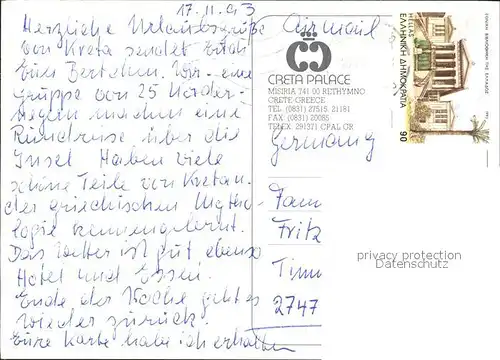 17.11.93
Herzliche Urlaubsgrüße
von Kreta sendet Euch
Euer Bertchen. Wir - eine
Gruppe von 25
machen eine
Rundreise über die
Insel. Haben viele
schöne Teile von Kreta und
der griechischen Mytho-
logie kennengelernt.
Das Wetter ist gut ebenso
Hotel und Essen.
Ende der Woche geht es
wieder zurück.
Eure Karte habe ich erhalten
Airmail
CRETA PALACE
MISIRIA 741 00 RETHYMNO
CRETE-GREECE
TEL. (0831) 27515, 21181
FAX (0831) 20085
TELEX 291371 CPAL GR
Germany
Fam
Fritz
2747
HELLAS
ΕΛΛΗΝΙΚΗ ΔΗΜΟΚΡΑΤΙΑ
90
privacy protection
Datenschutz